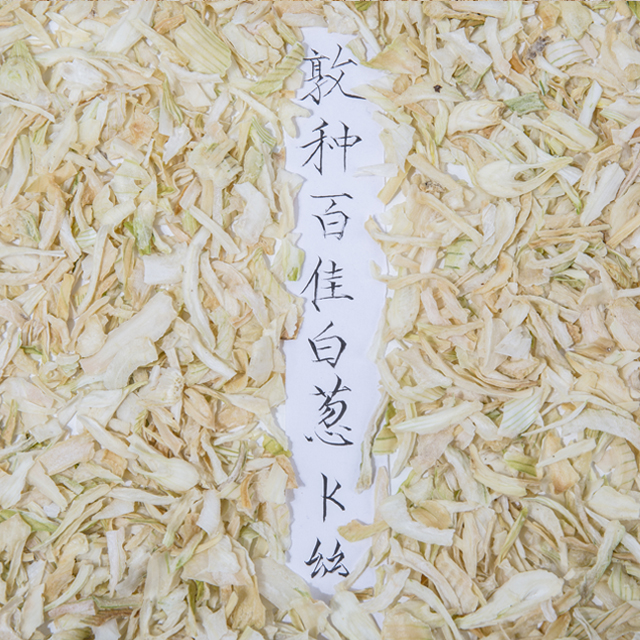 敦种百佳白葱K丝